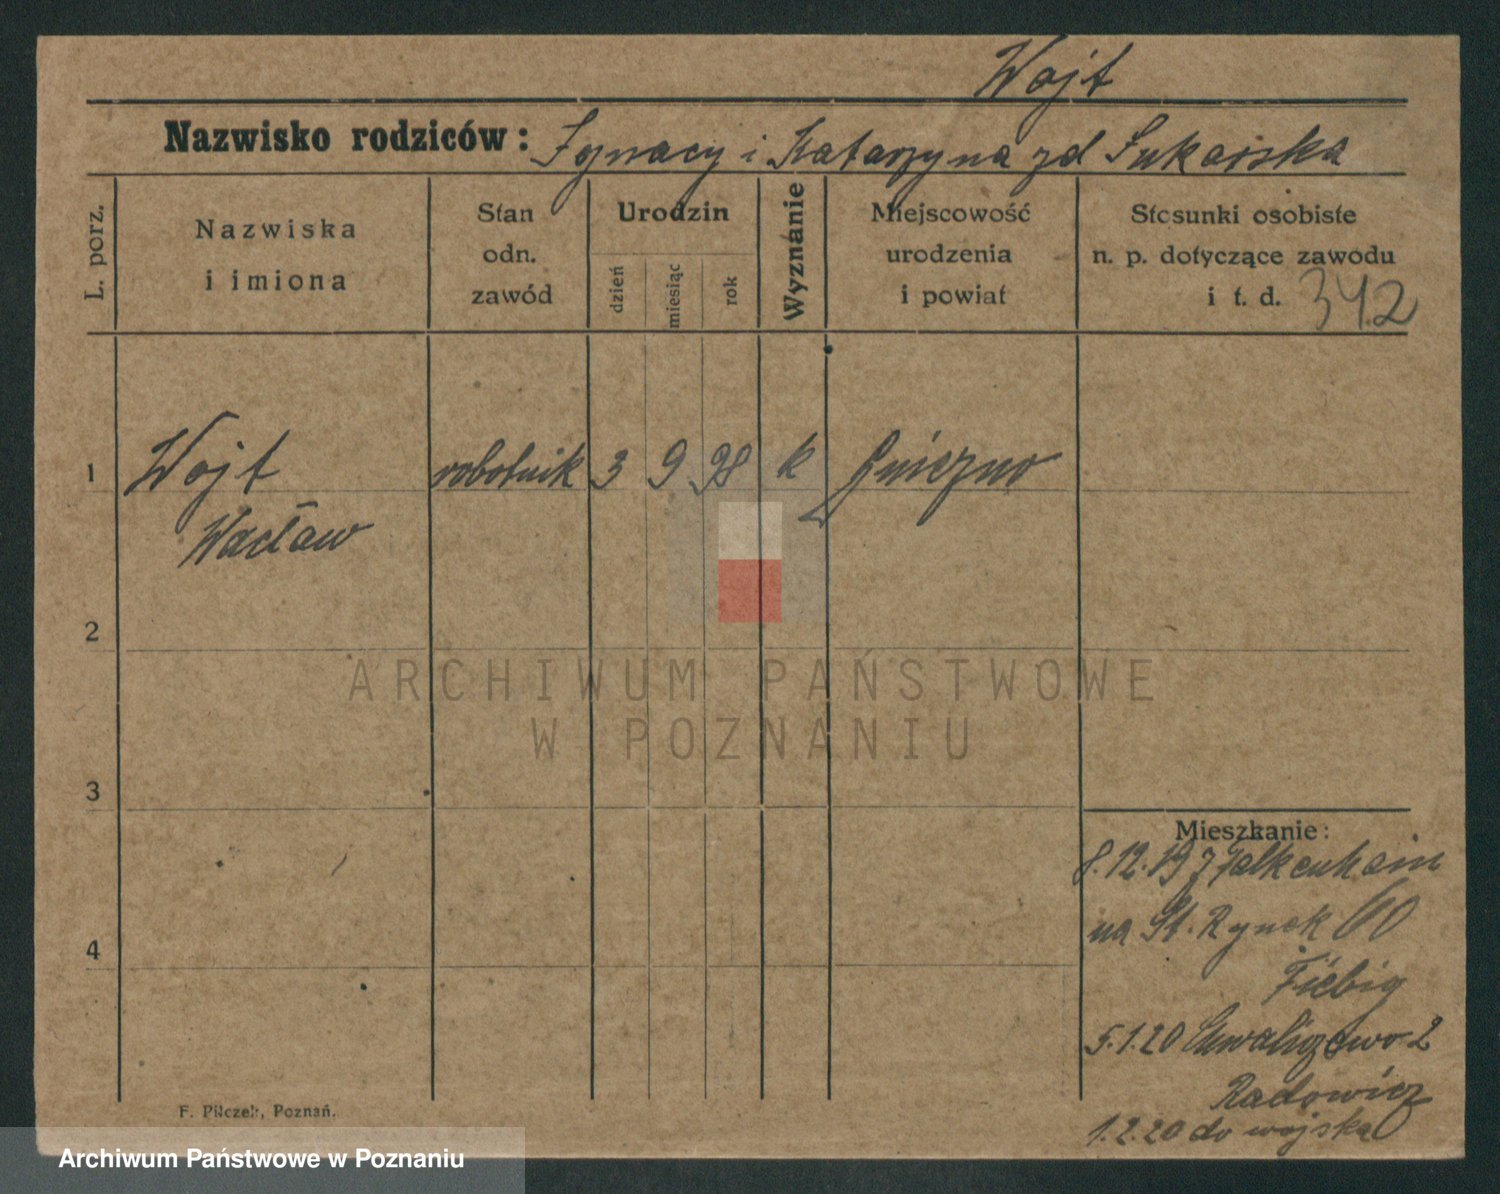 Wojt
Nazwisko rodziców: Ignacy i Katarzyna zd Sukarska
L. porz.
Nazwiska
i imiona
Stan
odn.
zawód
Urodzin
dzień
miesiąc
rok
Wyznanie
Miejscowość
urodzenia
i powiat
Stosunki osobiste
n. p. dotyczące zawodu
i t. d. 342
1 Wojt robotnik 3 9 98 k Gniezno
Wacław
2
ARCHIWUM PAŃSTWOWE
W POZNANIU
3
Mieszkanie:
8.12.19 z Falkenhain
4
na St. Rynek 60
Fiebig
5.1.20 Chwaliszewo 2
Radowicz
1.2.20 do wojska
F. Pilczek, Poznań.
Archiwum Państwowe w Poznaniu